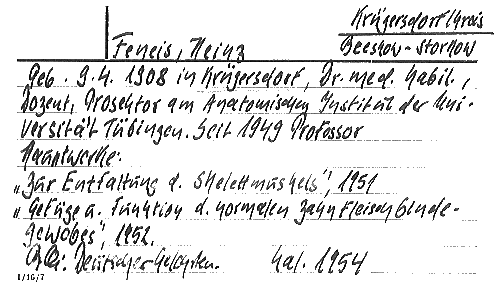 Krügersdorf Kreis
Feneis, Heinz Beeskow-Storkow
Geb. 9.4. 1908 in Krügersdorf, Dr. med. habil.,
Dozent, Prosektor am Anatomischen Institut der Uni-
versität Tübingen. Seit 1949 Professor
Hauptwerke:
„Zur Entfaltung d. Skelettmuskels", 1951
„Gefüge u. Funktion d. normalen Zahnfleischbinde-
gewebes", 1952.
Deutscher Gelehrten. Kal. 1954
1/16/7